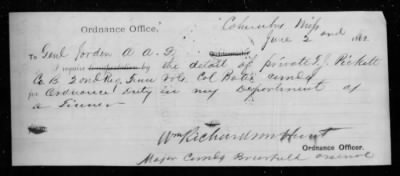 Ordnance Office,
Columbus Miss
June 2 and 1862
To Genl Jordan A A G
I require the detail of private E. J. Pickett
Co. B 2 ond Reg. Tenn Vols Col Bate comdg
for Ordnance Duty in my Department as
a Tinner
Wm Richardson Hunt
Ordnance Officer.
Major Comdg Briarfield Arsenal